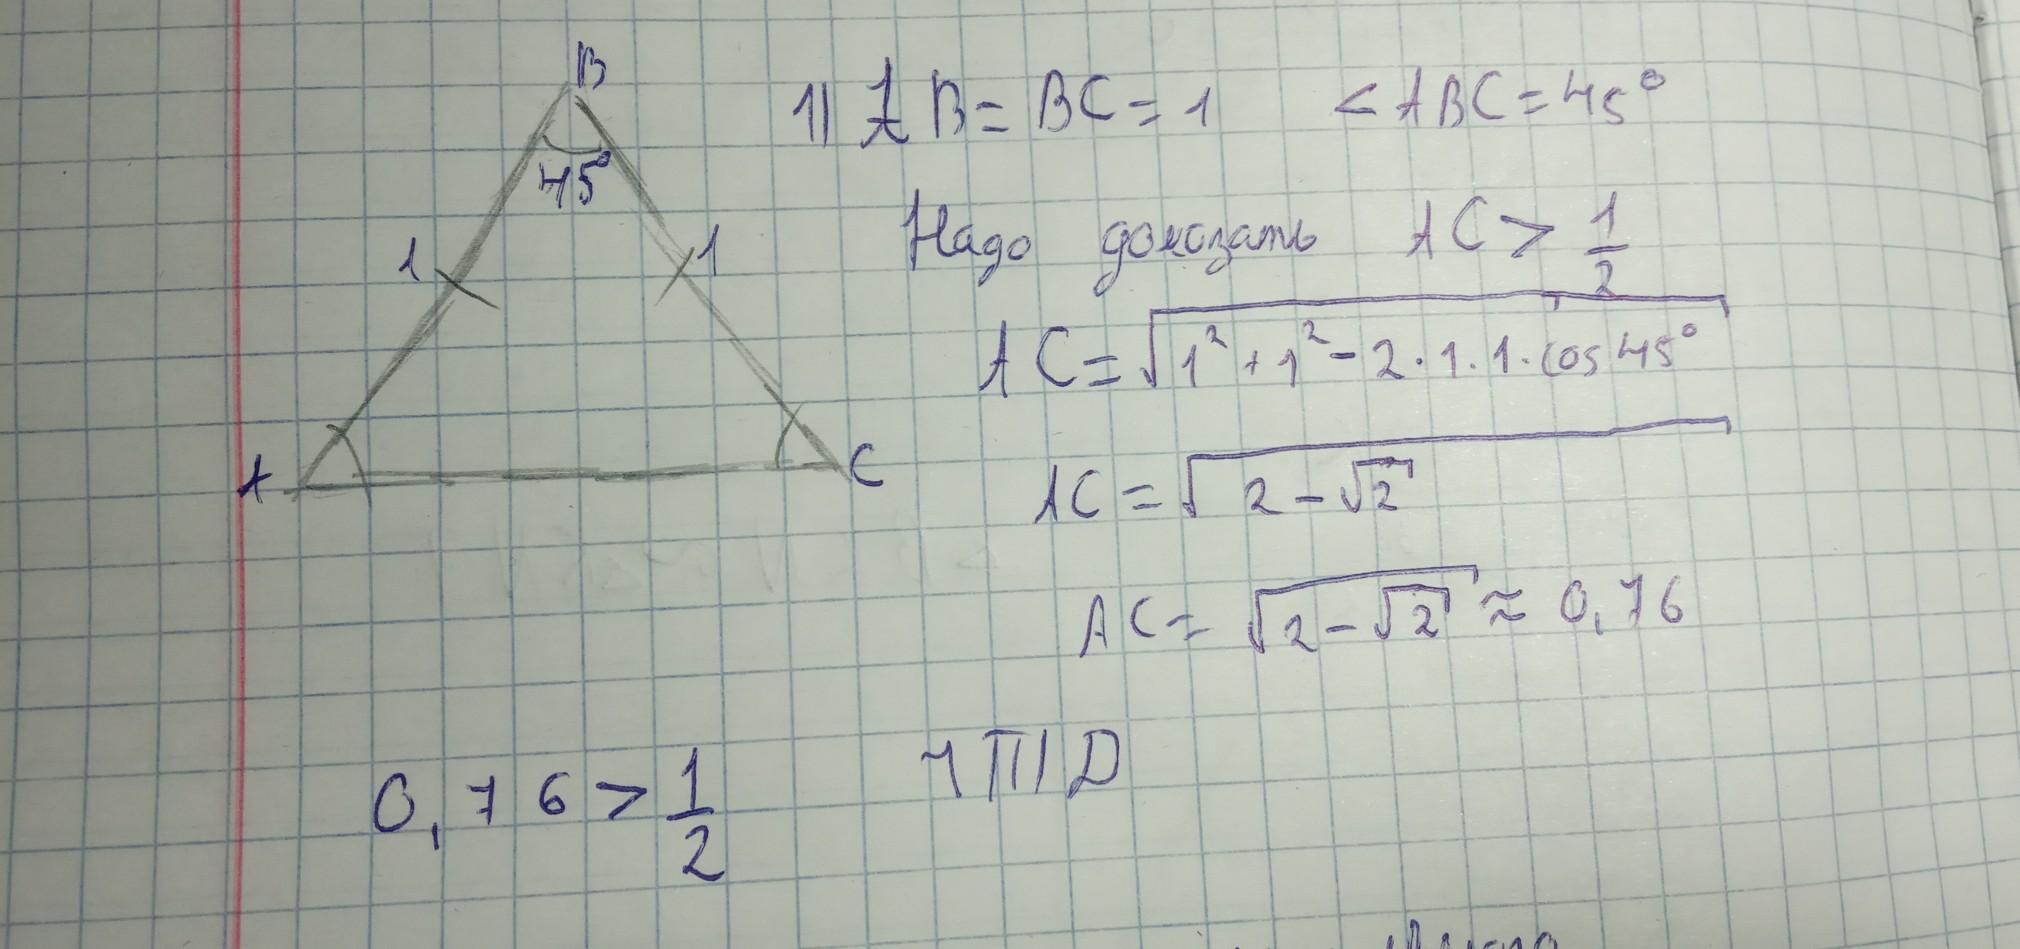 B
45°
1
1
A
C
1) AB = BC = 1 < ABC = 45°
Надо доказать AC > 1/2
AC = √(1² + 1² - 2 · 1 · 1 · cos 45°)
AC = √(2 - √2)
AC = √(2 - √2) ≈ 0,76
0,76 > 1/2 ЧТД